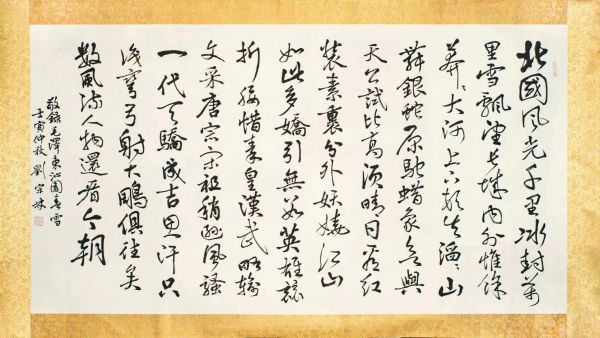 北國風光千里冰封萬
里雪飄望長城內外惟餘
莽〻大河上下頓失滔〻山
舞銀蛇原馳蠟象欲與
天公試比高須晴日看紅
裝素裹分外妖嬈江山
如此多嬌引無數英雄競
折腰惜秦皇漢武略輸
文采唐宗宋祖稍遜風騷
一代天驕成吉思汗只
識彎弓射大鵰俱往矣
數風流人物還看今朝
敬錄毛澤東沁園春雪
壬寅仲秋劉宗林